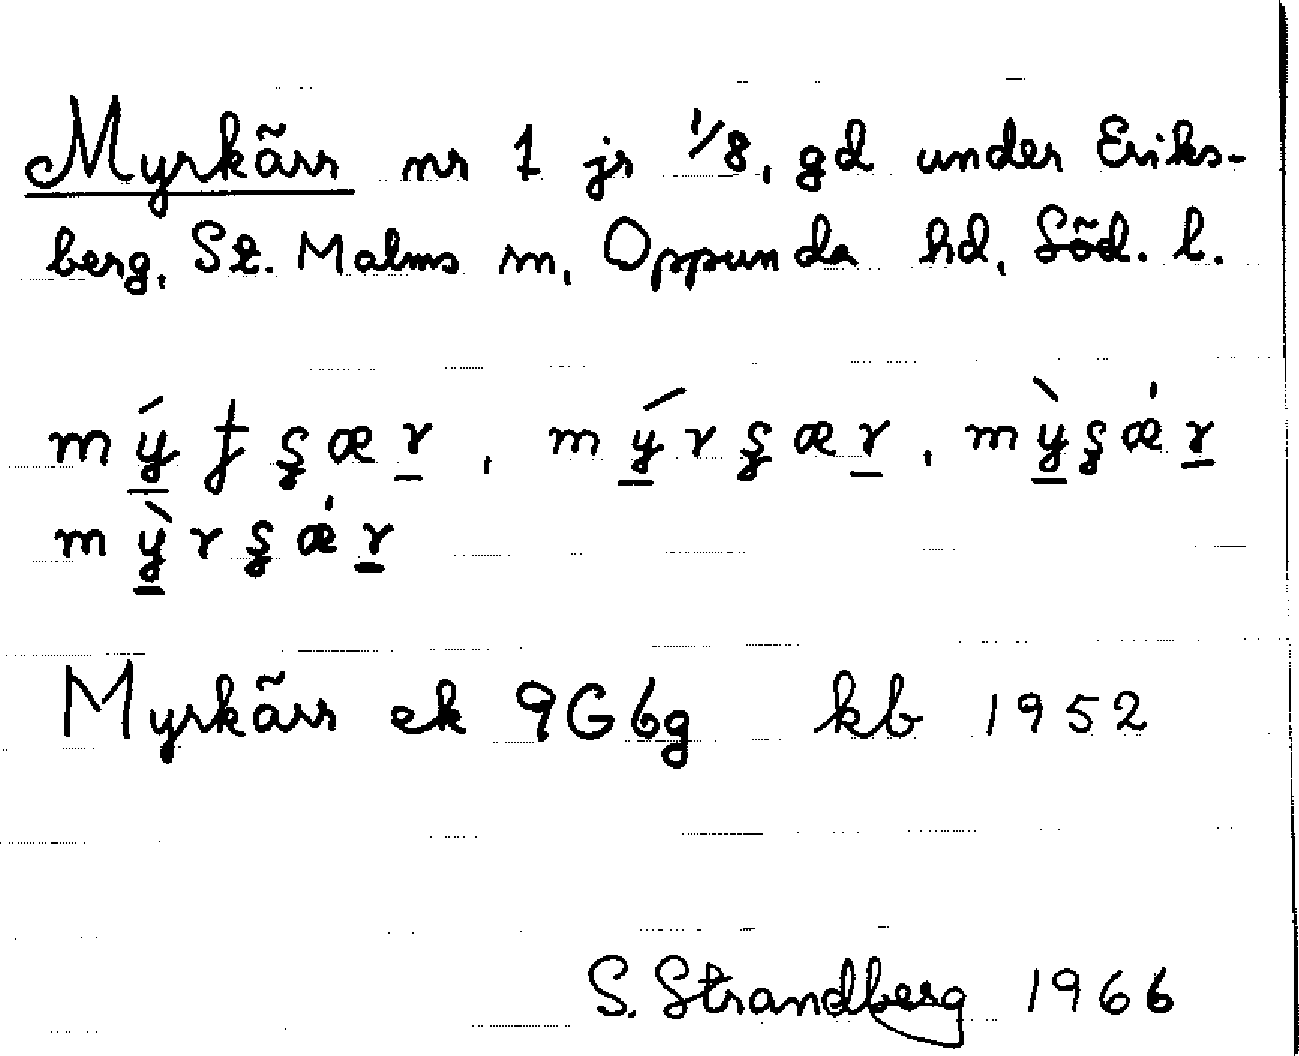 Myrkärr nr 1 jr 1/8, gd under Eriks-
berg, St. Malms sn, Oppunda hd, Söd. l.
Myrkärr ek 9G6g kb 1952
S. Strandberg 1966